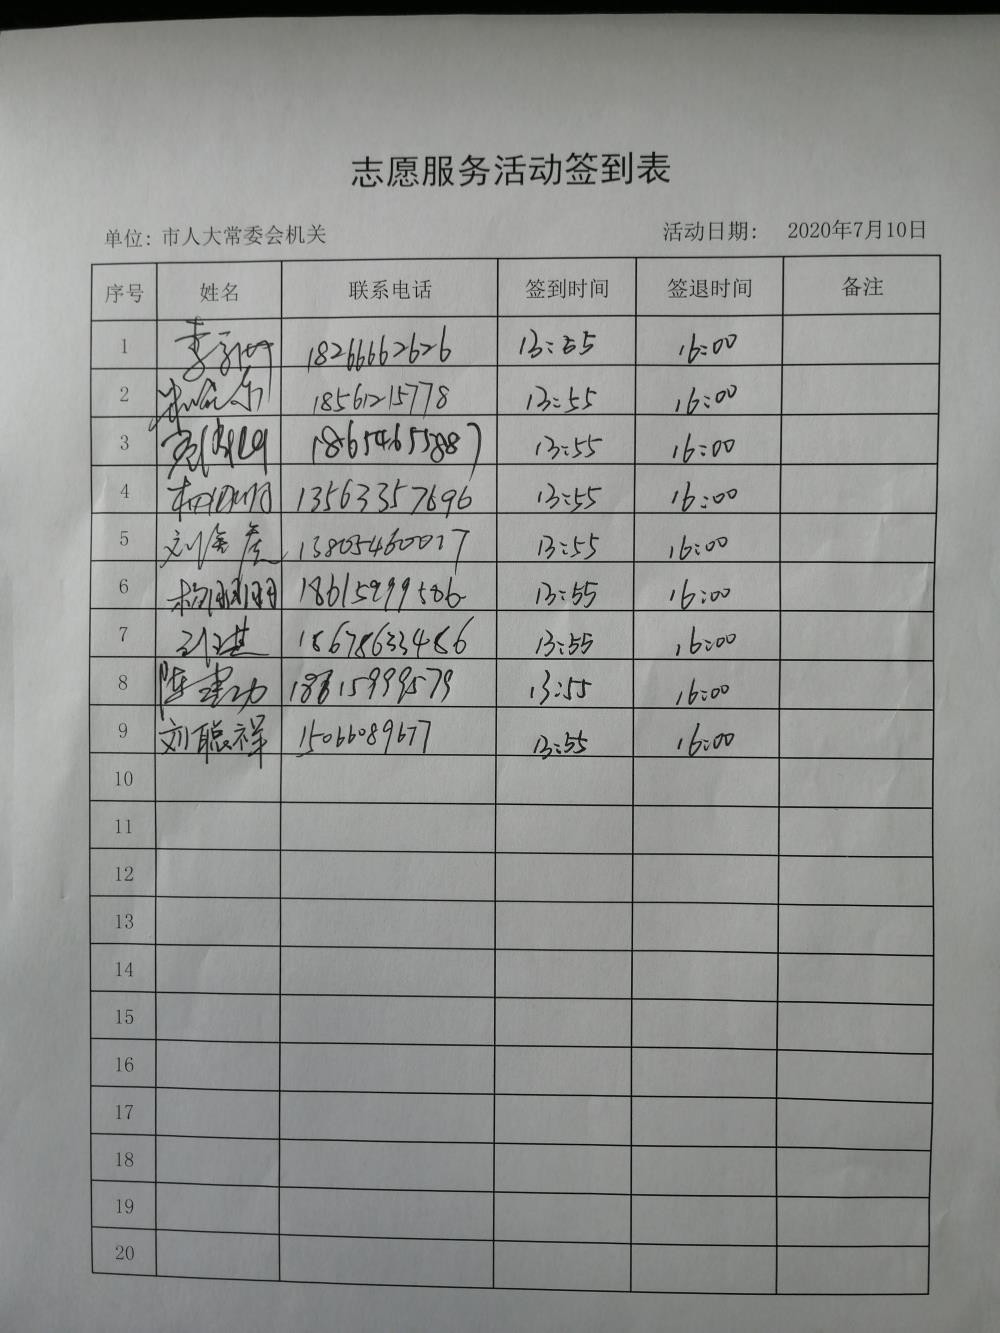 志愿服务活动签到表
单位：市人大常委会机关 活动日期： 2020年7月10日
序号 姓名 联系电话 签到时间 签退时间 备注
1 李 18266662626 13:55 16:00
2 18561215778 13:55 16:00
3 18654655887 13:55 16:00
4 13563357696 13:55 16:00
5 刘金 13805460017 13:55 16:00
6 18615999586 13:55 16:00
7 18678633486 13:55 16:00
8 陈建功 18815999579 13:55 16:00
9 刘聪祥 15066089677 13:55 16:00
10
11
12
13
14
15
16
17
18
19
20